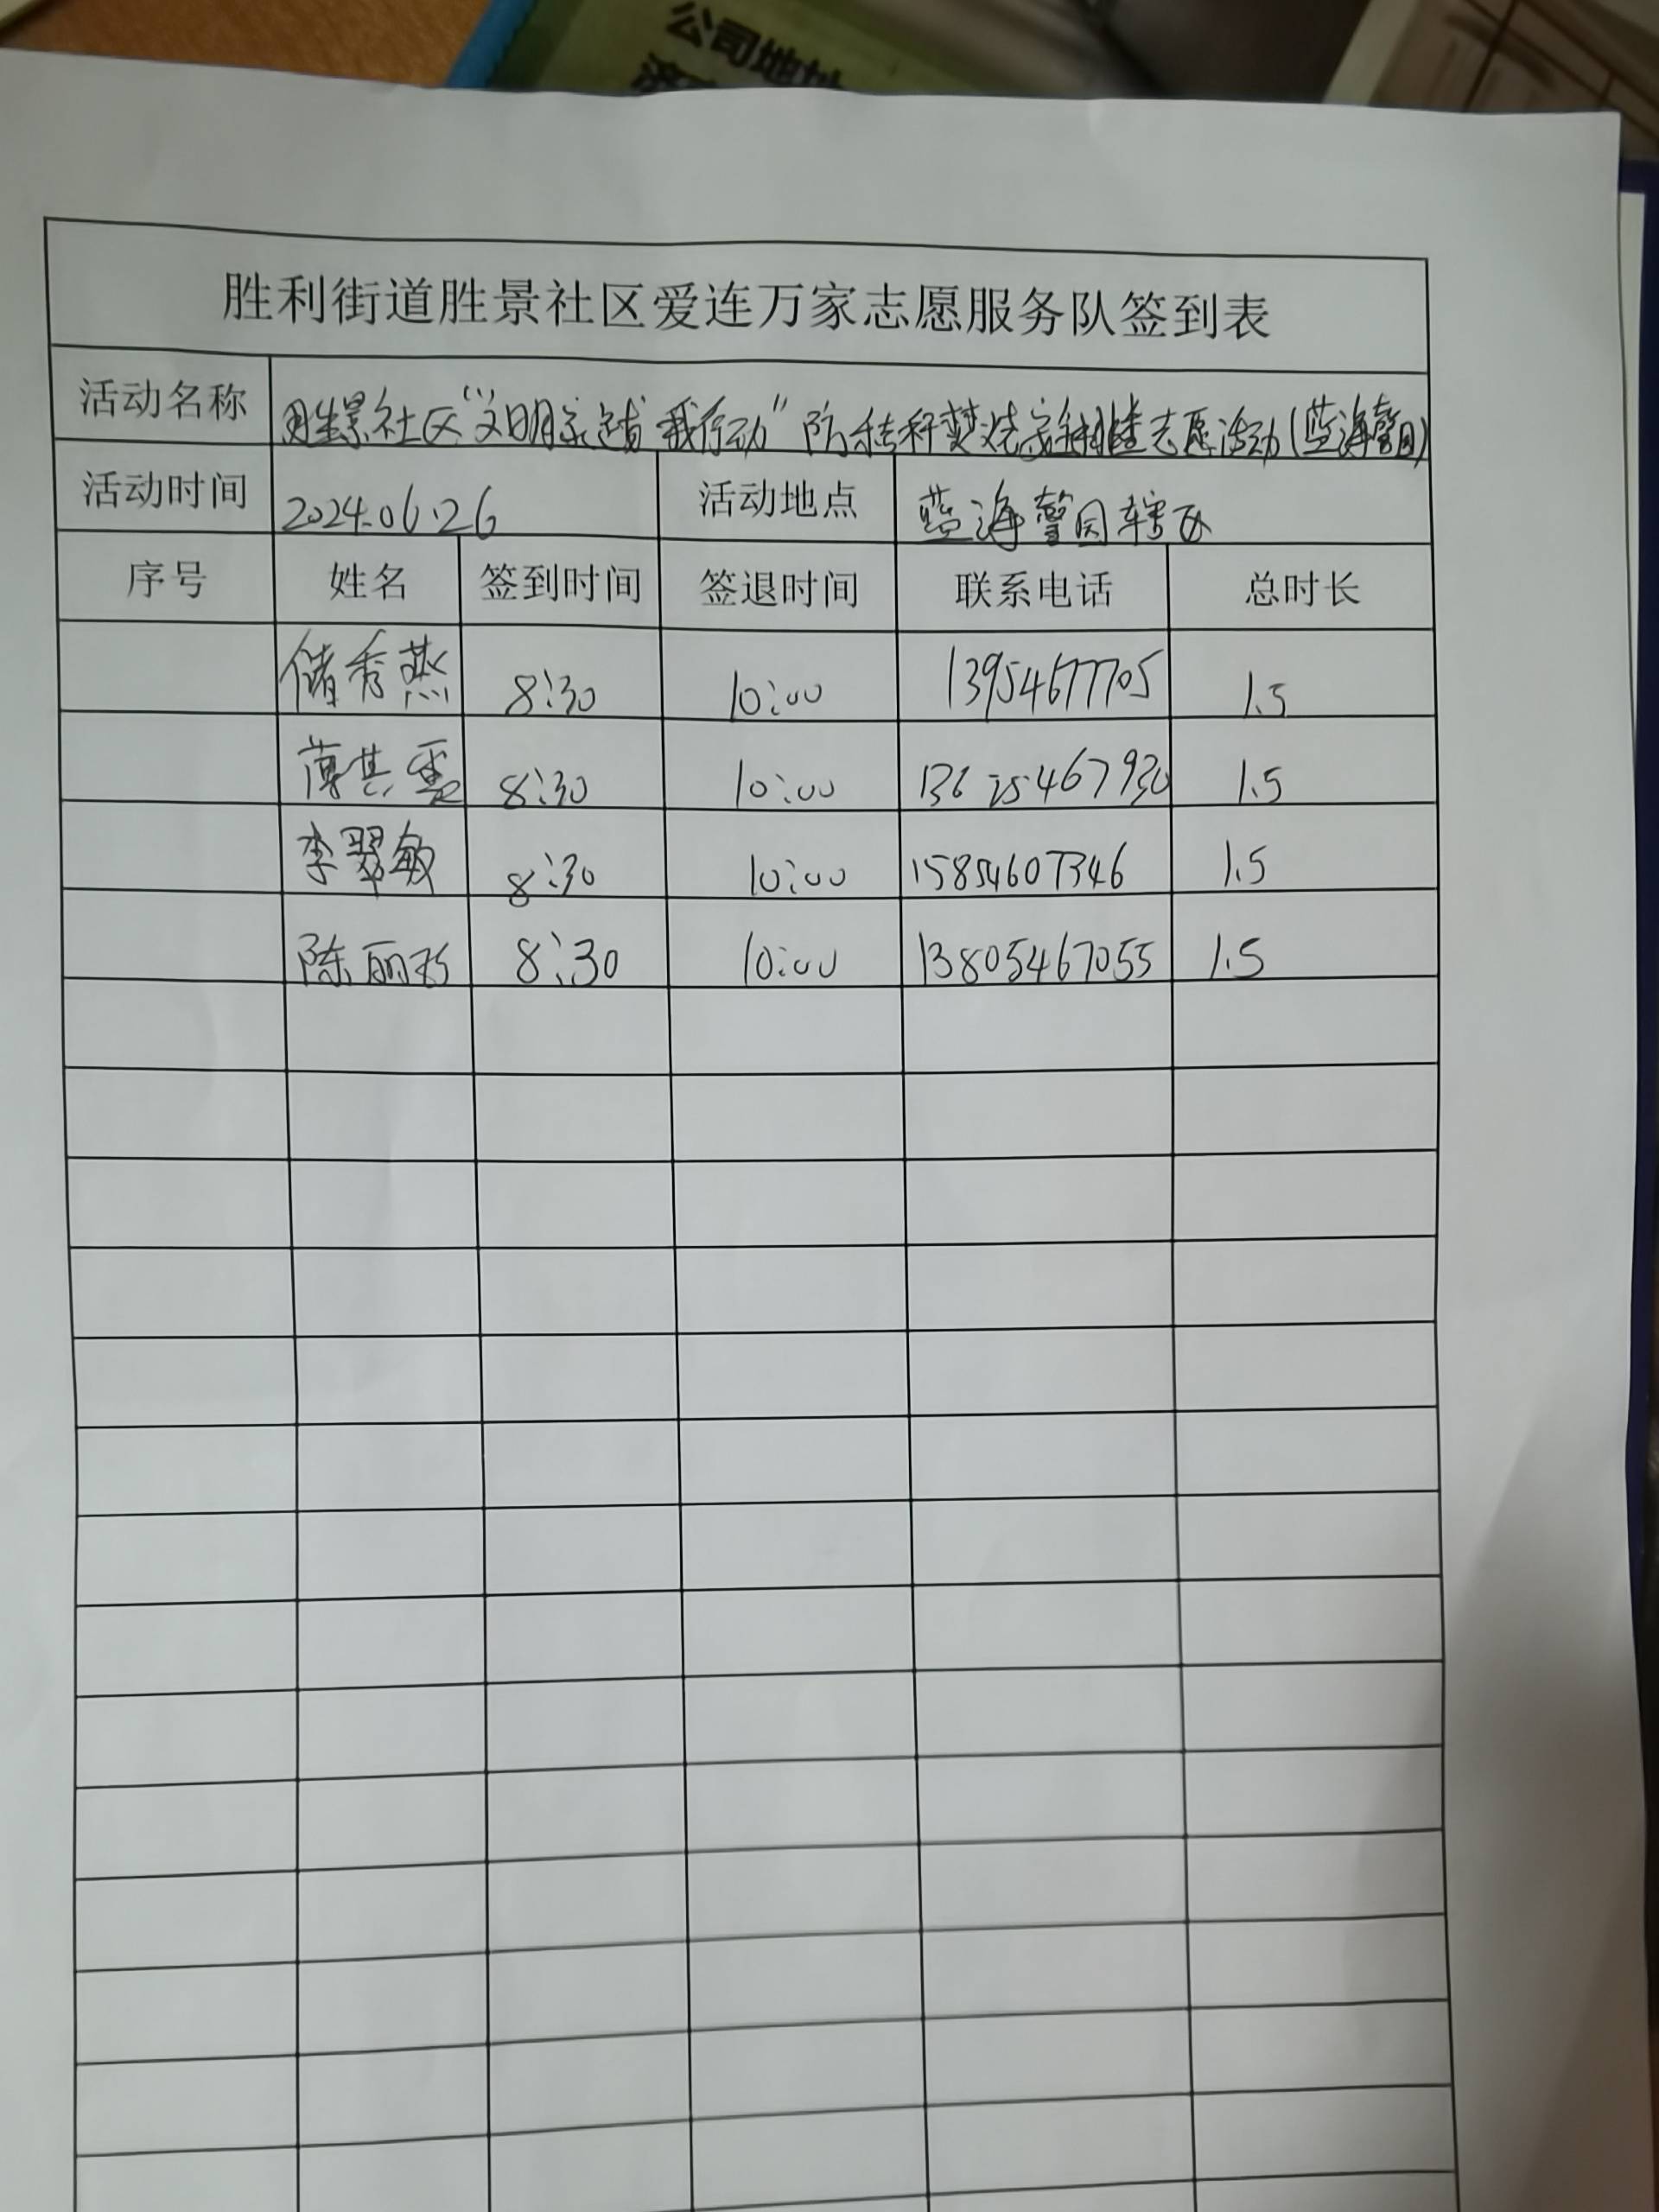 公司地址
胜利街道胜景社区爱连万家志愿服务队签到表
活动名称 胜景社区“文明家园 我行动”防秸秆焚烧 志愿活动(蓝海馨园)
活动时间 2024.06.26 活动地点 蓝海馨园辖区
序号 姓名 签到时间 签退时间 联系电话 总时长
储秀燕 8:30 10:00 13954677705 1.5
薄其雪 8:30 10:00 1.5
李翠敏 8:30 10:00 15854607346 1.5
陈丽珍 8:30 10:00 13805467055 1.5